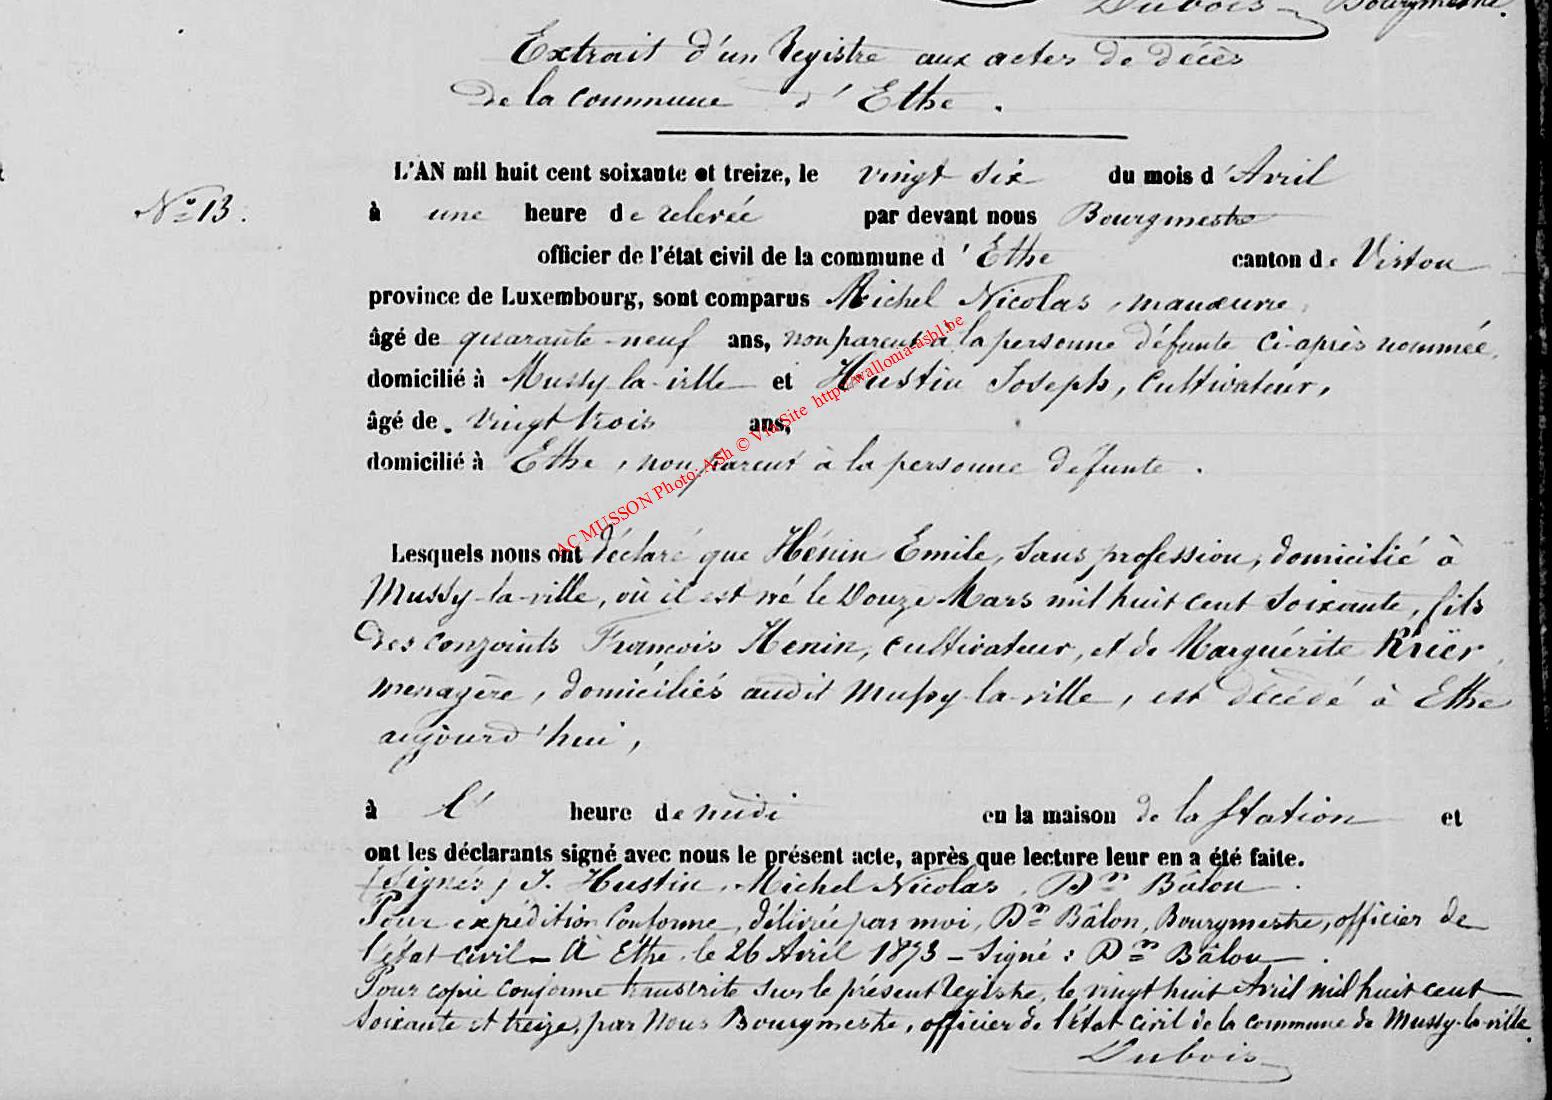 Dubois Bourgmestre.
Extrait d'un Registre aux actes de décès
de la commune d'Ethe.
L'AN mil huit cent soixante et treize, le vingt six du mois d'Avril
N° 13.
à une heure de relevée par devant nous Bourgmestre
officier de l'état civil de la commune d'Ethe canton de Virton
province de Luxembourg, sont comparus Michel Nicolas, manœuvre,
âgé de quarante-neuf ans, non parent à la personne défunte ci-après nommée,
domicilié à Mussy-la-ville et Hustin Joseph, Cultivateur,
âgé de vingt trois ans,
domicilié à Ethe, non parent à la personne défunte.
AC MUSSON Photo: ASh © Via Site http://wallonia-asbl.be
Lesquels nous ont déclaré que Hénin Emile, sans profession, domicilié à
Mussy-la-ville, où il est né le Douze Mars mil huit cent soixante, fils
des conjoints François Henin, cultivateur, et de Marguérite Kriër,
menagère, domiciliés audit Mussy-la-ville, est décédé à Ethe
aujourd'hui,
à l' heure de midi en la maison de la Station et
ont les déclarants signé avec nous le présent acte, après que lecture leur en a été faite.
(Signés) J. Hustin, Michel Nicolas, Dn Bâlon.
Pour expédition conforme, délivrée par moi, Dn Bâlon, Bourgmestre, officier de
l'état civil - A Ethe, le 26 Avril 1873 - Signé : Dn Bâlon.
Pour copie conforme transcrite sur le présent Registre, le vingt huit Avril mil huit cent
soixante et treize, par Nous Bourgmestre, officier de l'état civil de la commune de Mussy-la-ville.
Dubois